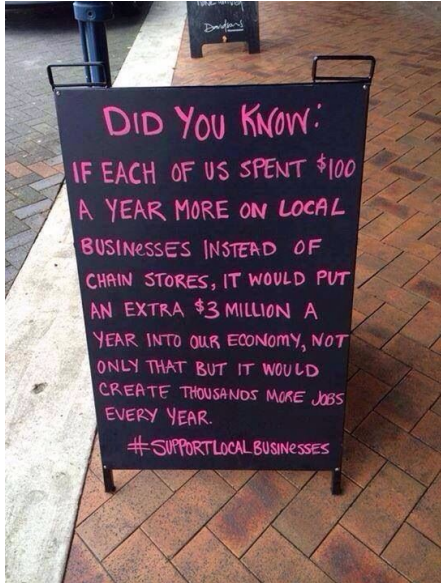 DID YOU KNOW:
IF EACH OF US SPENT $100
A YEAR MORE ON LOCAL
BUSINESSES INSTEAD OF
CHAIN STORES, IT WOULD PUT
AN EXTRA $3 MILLION A
YEAR INTO OUR ECONOMY, NOT
ONLY THAT BUT IT WOULD
CREATE THOUSANDS MORE JOBS
EVERY YEAR.
#SUPPORTLOCALBUSINESSES